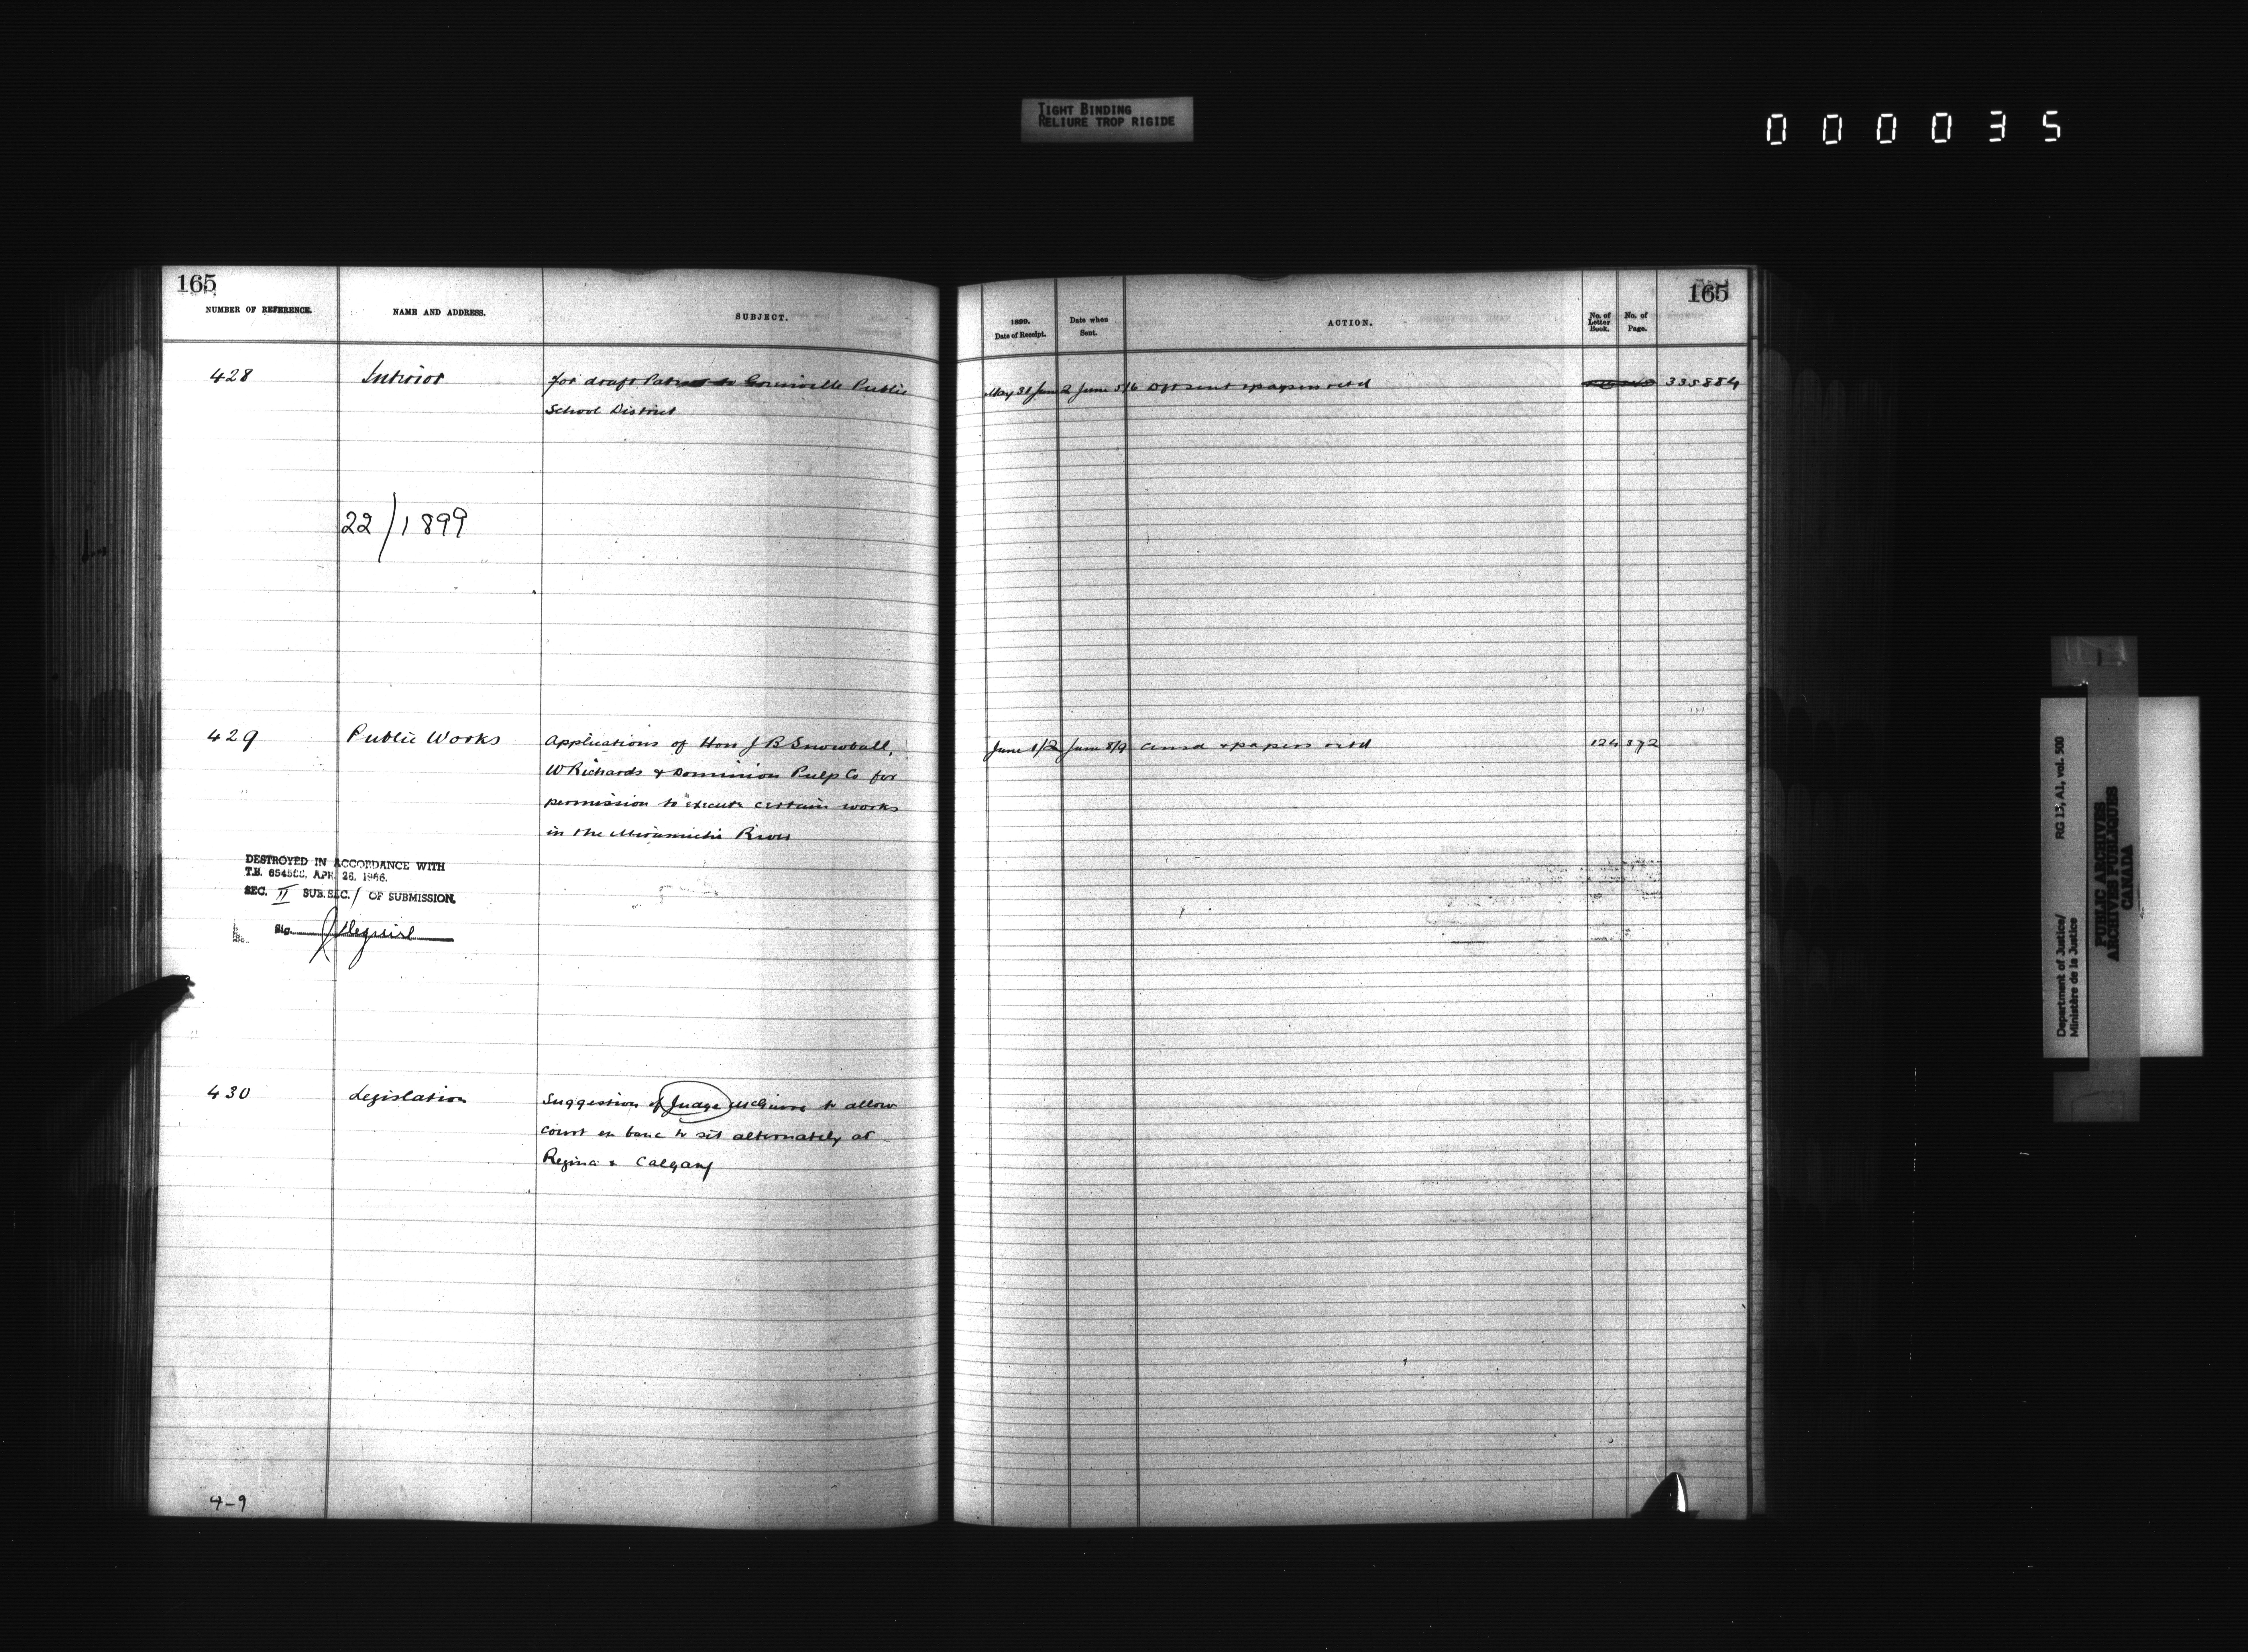 TIGHT BINDING
RELIURE TROP RIGIDE
000035
165
NUMBER OF REFERENCE.
NAME AND ADDRESS.
SUBJECT.
165
1899.
Date of Receipt.
Date when
Sent.
ACTION.
No. of
Letter
Book.
No. of
Page.
428
Interior
for draft Patent to Public
School District
May 31 June 2 June 5/6 Dft sent & papers retd
335884
22/1899
429
Public Works
Applications of Hon J B Snowball,
W Richards & Dominion Pulp Co for
permission to execute certain works
in the Miramichi River
June 1/2 June 8/9 Ansd & papers retd
124 372
DESTROYED IN ACCORDANCE WITH
T.B. APR. 26, 1966.
SEC. II SUB.SEC. 1 OF SUBMISSION.
Sig.
430
Legislation
Suggestion of Judge McGuire to allow
court en banc to sit alternately at
Regina & Calgary
4-9
Department of Justice/
Ministère de la Justice
RG 13, A1, vol. 500
PUBLIC ARCHIVES
ARCHIVES PUBLIQUES
CANADA